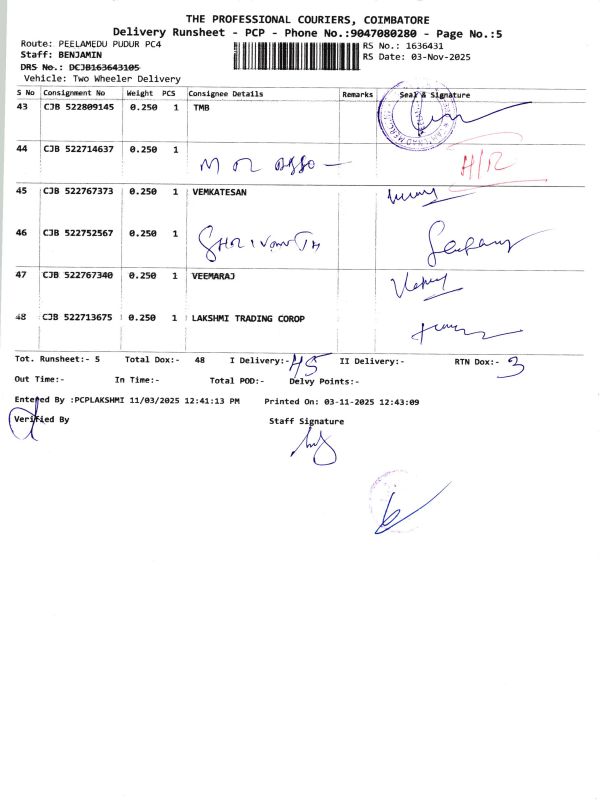 THE PROFESSIONAL COURIERS, COIMBATORE
Delivery Runsheet - PCP - Phone No.:9047080280 - Page No.:5
Route: PEELAMEDU PUDUR PC4
RS No.: 1636431
Staff: BENJAMIN
RS Date: 03-Nov-2025
DRS No.: DCJB163643105
Vehicle: Two Wheeler Delivery
S No Consignment No Weight PCS Consignee Details Remarks Seal & Signature
43 CJB 522809145 0.250 1 TMB
44 CJB 522714637 0.250 1
H/R
45 CJB 522767373 0.250 1 VEMKATESAN
46 CJB 522752567 0.250 1
47 CJB 522767340 0.250 1 VEEMARAJ
48 CJB 522713675 0.250 1 LAKSHMI TRADING COROP
Tot. Runsheet:- 5 Total Dox:- 48 I Delivery:- 45 II Delivery:- RTN Dox:- 3
Out Time:- In Time:- Total POD:- Delvy Points:-
Entered By :PCPLAKSHMI 11/03/2025 12:41:13 PM Printed On: 03-11-2025 12:43:09
Verified By Staff Signature